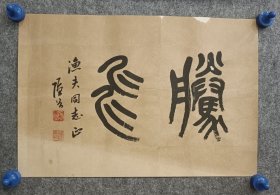 騰飛
渔夫同志正